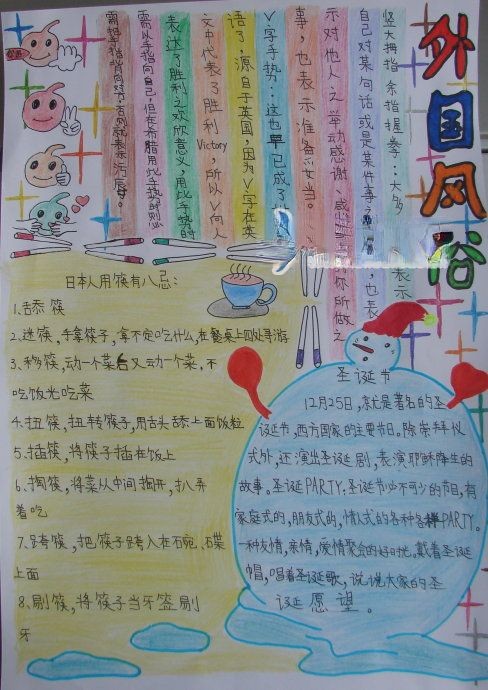 外国风俗
竖大拇指,余指握拳:大多
自己对某句话或是某件事之
示对他人之举动感谢、感
你所做之
事,也表示准备妥当。
V字手势:这也早已成了
语了,源自于英国,因为V字在英
文中代表了胜利Victory,所以V向人
表达了胜利之欢欣意义,用此手势时
需以手指向自己,但在希腊用此手势时则
日本人用筷有八忌:
1、舔筷
2、迷筷,手拿筷子,拿不定吃什么,在餐桌上四处寻游
3、移筷,动一个菜后又动一个菜,不
吃饭光吃菜
4、扭筷,扭转筷子,用舌头舔上面饭粒
5、插筷,将筷子插在饭上
6、掏筷,将菜从中间掏开,扒弄
着吃
7、跨筷,把筷子跨入在石碗、碟
上面
8、剔筷,将筷子当牙签剔
牙
圣诞节
12月25日,就是著名的圣
诞节,西方国家的主要节日。除崇拜仪
式外,还演出圣诞剧,表演耶稣降生的
故事。圣诞PARTY.圣诞节必不可少的节目,有
家庭式的,朋友式的,情人式的各种各样PARTY。
一种友情,亲情,爱情聚会的好时光。戴着圣诞
帽,唱着圣诞歌,说说大家的圣
诞愿望。